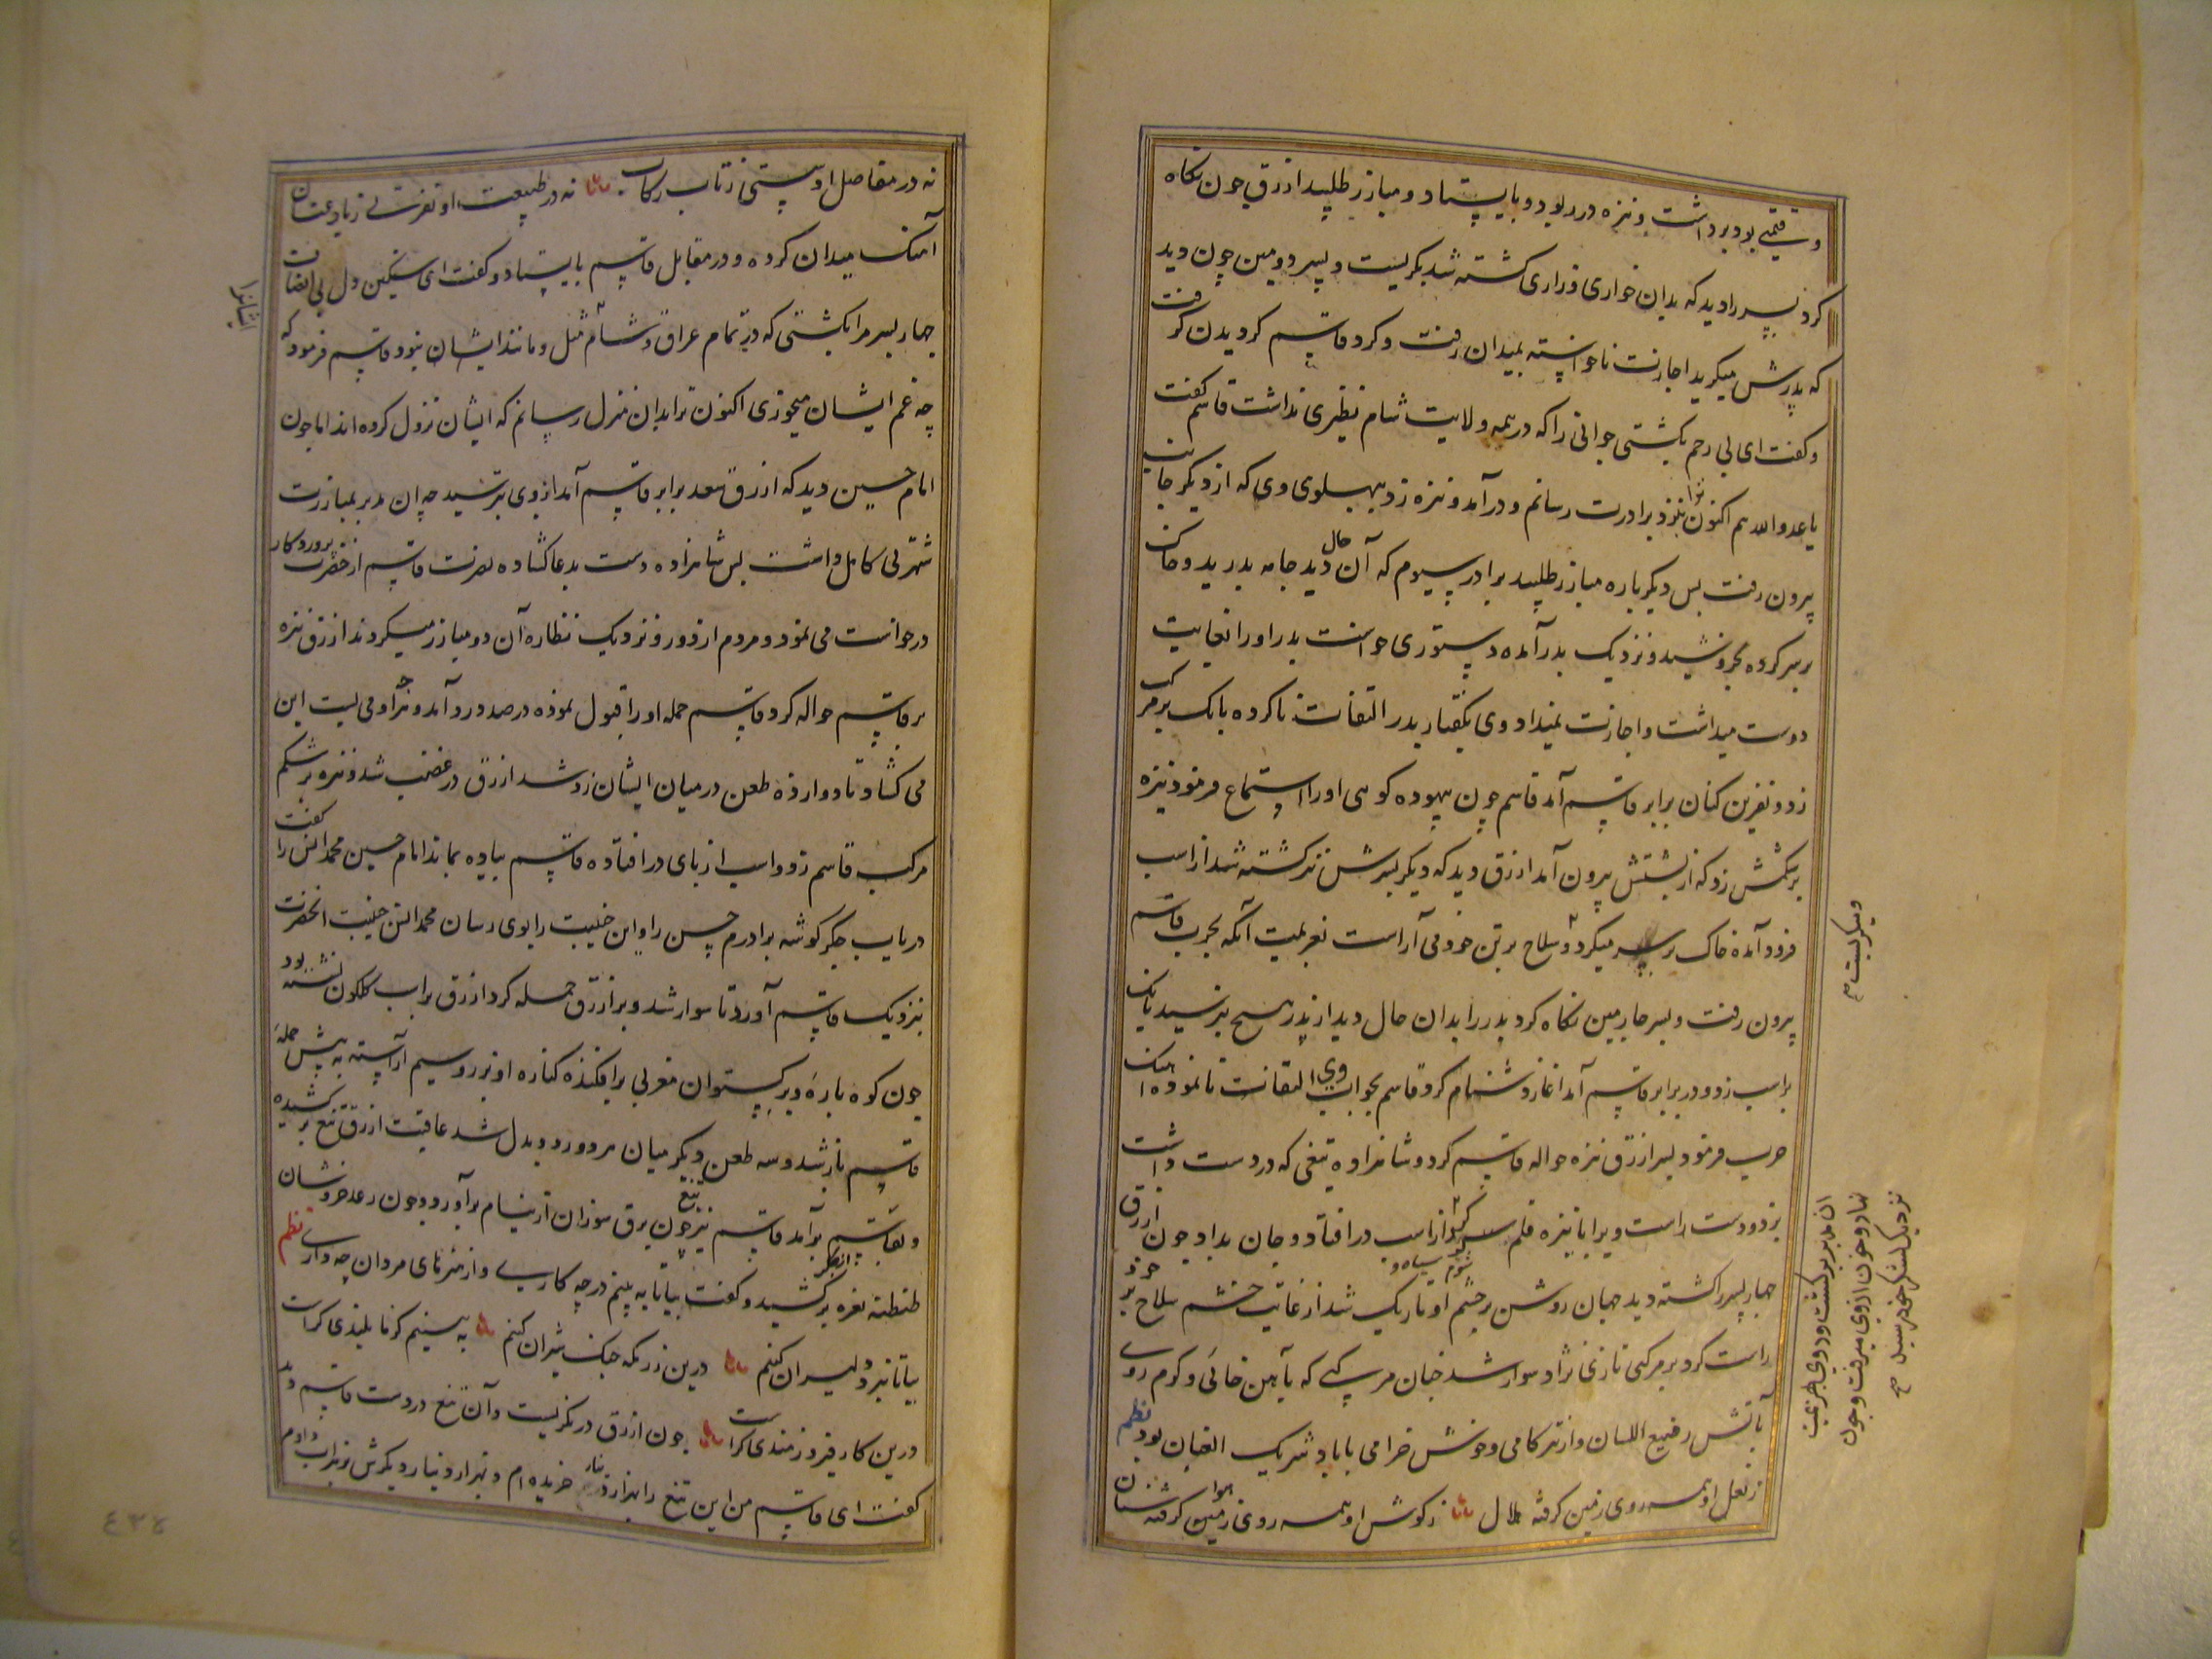 و قیمتی بود برداشت و نیزه در ربود و بایستاد و مبارز طلبید ازرق چون نکاه
کرد پسر را دید که بدان خواری و زاری کشته شد بکریست و پسر دومین چون دید
که پدرش میکرید اجازت ناخواسته بمیدان رفت و کرد قاسم کردیدن کرفت
و کفت ای بی رحم بکشتی جوانی را که در همه ولایت شام نظیری نداشت قاسم کفت
یا عدو الله هم اکنون ترا بنزد برادرت رسانم و درآمد و نیزه زد بپهلوی وی که از دیکر جانب
بیرون رفت پس دیکر باره مبارز طلبید برادر سیوم که آن حال دید جامه بدرید و خاک
بر سر کرده بخروشید و نزدیک پدر آمده دستوری خواست پدر او را بغایت
دوست میداشت و اجازت نمیداد وی بکفتار پدر التفات ناکرده بانک بر مرکب
زد و نفرین کنان برابر قاسم آمد قاسم چون بیهوده کوهی او را استماع فرمود نیزه
بر شکمش زد که از پشتش بیرون آمد ازرق دید که دیکر پسرش نیز کشته شد از اسب
فرود آمده خاک بر سر میکرد و سلاح بر تن خود می آراست بعزیمت آنکه بحرب قاسم
بیرون رفت و پسر چارمین نکاه کرد پدر را بدان حال دید از پدر هیچ نپرسید بانک
بر اسب زد و در برابر قاسم آمد آغاز دشنام کرد قاسم بجواب وی التفات نانموده آهنک
حرب فرمود پسر ازرق نیزه حواله قاسم کرد و شاهزاده تیغی که در دست داشت
بزد و دست راست ویرا با نیزه قلم کرد از اسب در افتاد و جان بداد چون ازرق
چهار پسر را کشته دید جهان روشن بر چشم او تاریک شد از غایت خشم سلاح بر خود
راست کرد و بر مرکبی تازی نژاد سوار شد چنان مرکبی که
بآتش رفیع اللسان و از تیزکامی و خوش خرامی با باد شریک العنان بود نظم
ز نعل او همه روی زمین کرفته هلال ز کوش او همه روی هوا کرفته سنان
و میکریست صح
نه در مفاصل او سستی ز تاب رکاب نه در طبیعت او نفرتی ز باد عنان
آهنک میدان کرده و در مقابل قاسم بایستاد و کفت ای سنکین دل بی انصاف
چهار پسر مرا بکشتی که در تمام عراق و شام مثل و مانند ایشان نبود قاسم فرمود که
چه غم ایشان میخوری اکنون ترا بدان منزل رسانم که ایشان نزول کرده اند اما چون
امام حسین دید که ازرق بعد برابر قاسم آمد از وی بترسید چه آن مدبر بمبارزت
شهرتی کامل داشت پس شاهزاده دست بدعا کشاده نصرت قاسم از حضرت پروردکار
درخواست می نمود و مردم از دور و نزدیک نظاره آن دو مبارز میکردند ازرق نیزه
بر قاسم حواله کرد قاسم حمله او را قبول نموده در صدد رد آمد و هر چه او می بست این
می کشاد تا دوازده طعن در میان ایشان رد شد ازرق در غضب شد و نیزه بر شکم
مرکب قاسم زد و اسب از پای در افتاده قاسم پیاده بماند امام حسین محمد انس را کفت
دریاب جکرکوشه برادرم حسن را و این جنیبت را بوی رسان محمد انس جنیبت آنحضرت
بنزدیک قاسم آورد تا سوار شد و بر ازرق حمله کرد ازرق بر اسب کلکون نشسته بود
چون کوه پاره و برکستوان مغربی برافکنده کناره او بزر و سیم آراسته به پیش حمله
قاسم باز شد و سه طعن دیکر میان هر دو رد و بدل شد عاقبت ازرق تیغ برکشیده
و بقاسم برآمد قاسم نیز تیغ چون برق سوزان از نیام برآورد و چون رعد خروشان
طنطنه نعره برکشید و کفت بیا تا به بینم در چه کاری و از هنرهای مردان چه داری نظم
بیا تا نبرد دلیران کنیم درین رزمکه جنک شیران کنیم به بینیم کز ما بلندی کراست
درین کار فیروزمندی کراست چون ازرق در نکریست و آن تیغ در دست قاسم دید
کفت ای قاسم من این تیغ را بهزار دینار خریده ام و بهزار دینار دیکرش زهراب داده ام
ایشانرا